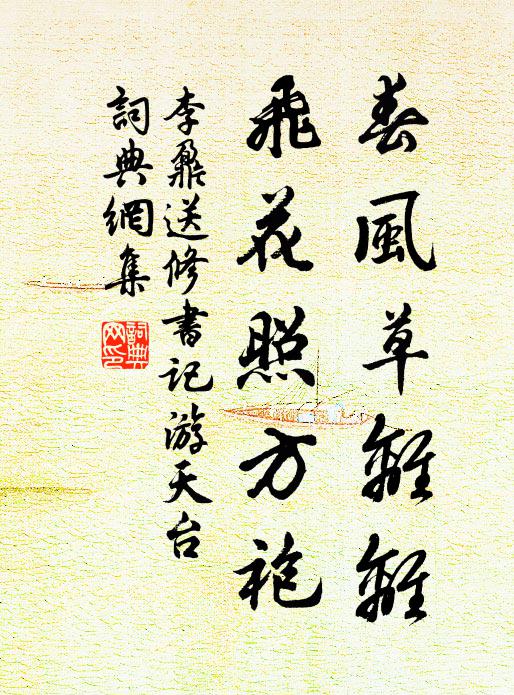 春風草離離
飛花照方袍
李鼐送修書記游天台
詞典網集
詞典
网印